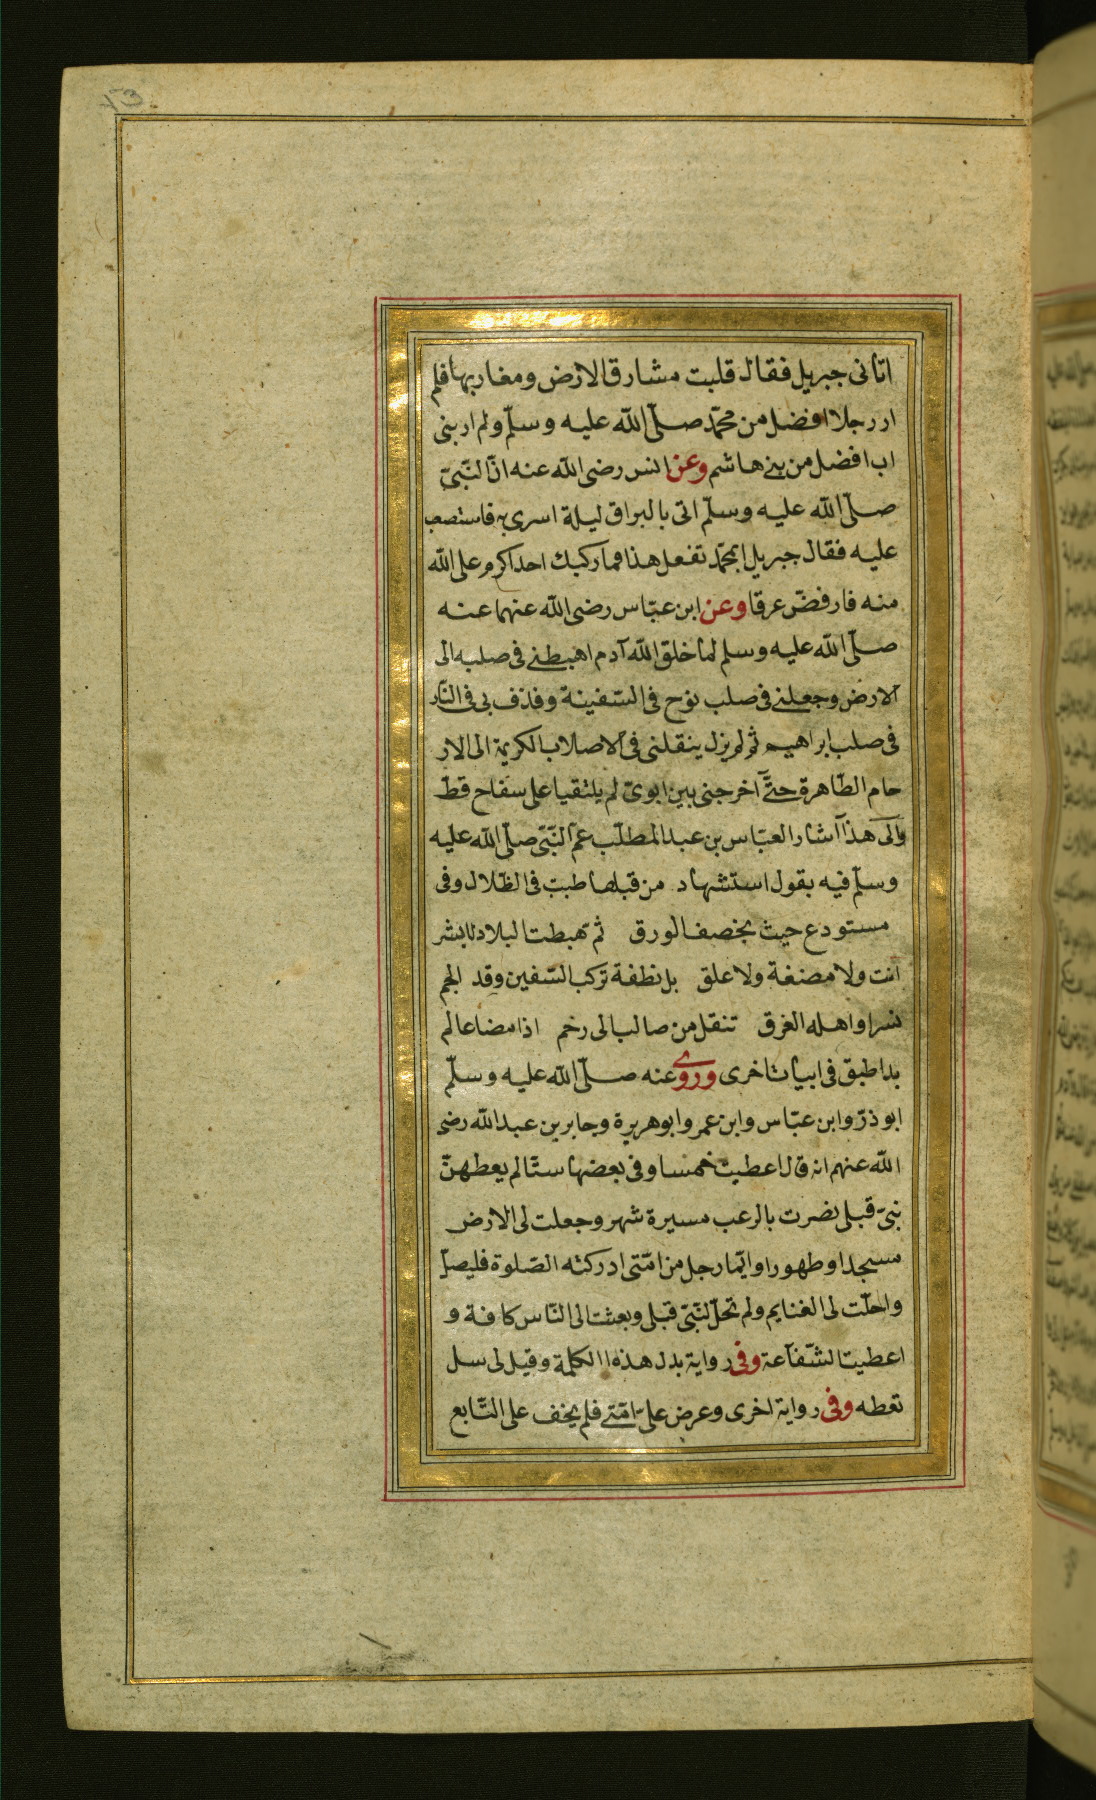 اتانى جبريل فقال قلبت مشارق الارض ومغاربها فلم
ار رجلا افضل من محمّد صلّى الله عليه وسلّم ولم ار بنى
اب افضل من بنى هاشم وعن انس رضى الله عنه انّ النّبىّ
صلّى الله عليه وسلّم اتى بالبراق ليلة اسرى به فاستصعب
عليه فقال جبريل ابمحمّد تفعل هذا فما ركبك احد اكرم على الله
منه فارفضّ عرقا وعن ابن عبّاس رضى الله عنهما عنه
صلّى الله عليه وسلم لما خلق الله آدم اهبطنى فى صلبه الى
الارض وجعلنى فى صلب نوح فى السّفينة وقذف بى فى النّار
فى صلب ابراهيم ثم لم يزل ينقلنى فى الاصلاب الكريمة الى الار
حام الطّاهرة حتّى آخرجنى بين ابوىّ لم يلتقيا على سفاح قطّ
والى هذا آشار العبّاس بن عبد المطلّب عمّ النّبىّ صلّى الله عليه
وسلّم فيه بقول استشهاد من قبلها طبت فى الظّلال وفى
مستودع حيث يخصف الورق ثم هبطت البلاد لا بشر
انت ولا مضغة ولا علق بل نطفة تركب السّفين وقد الجم
نسرا واهله الغرق تنقل من صالب الى رحم اذا مضا عالم
بدا طبق فى ابيات اخرى وروى عنه صلّى الله عليه وسلّم
ابو ذرّ وابن عبّاس وابن عمر وابو هريرة وجابر بن عبد الله رضى
الله عنهم انه قال اعطيت خمسا وفى بعضها ستّا لم يعطهنّ
نبىّ قبلى نصرت بالرعب مسيرة شهر وجعلت لى الارض
مسجدا وطهورا وايّما رجل من امّتى ادركته الصّلوة فليصلّ
واحلّت لى الغنايم ولم تحلّ لنّبىّ قبلى وبعثت الى النّاس كافة و
اعطيت الشّفآعة وفى رواية بدل هذه الكلمة وقيل لى سل
تعطه وفى رواية اخرى وعرض علىّ امّتى فلم يخف على التّابع